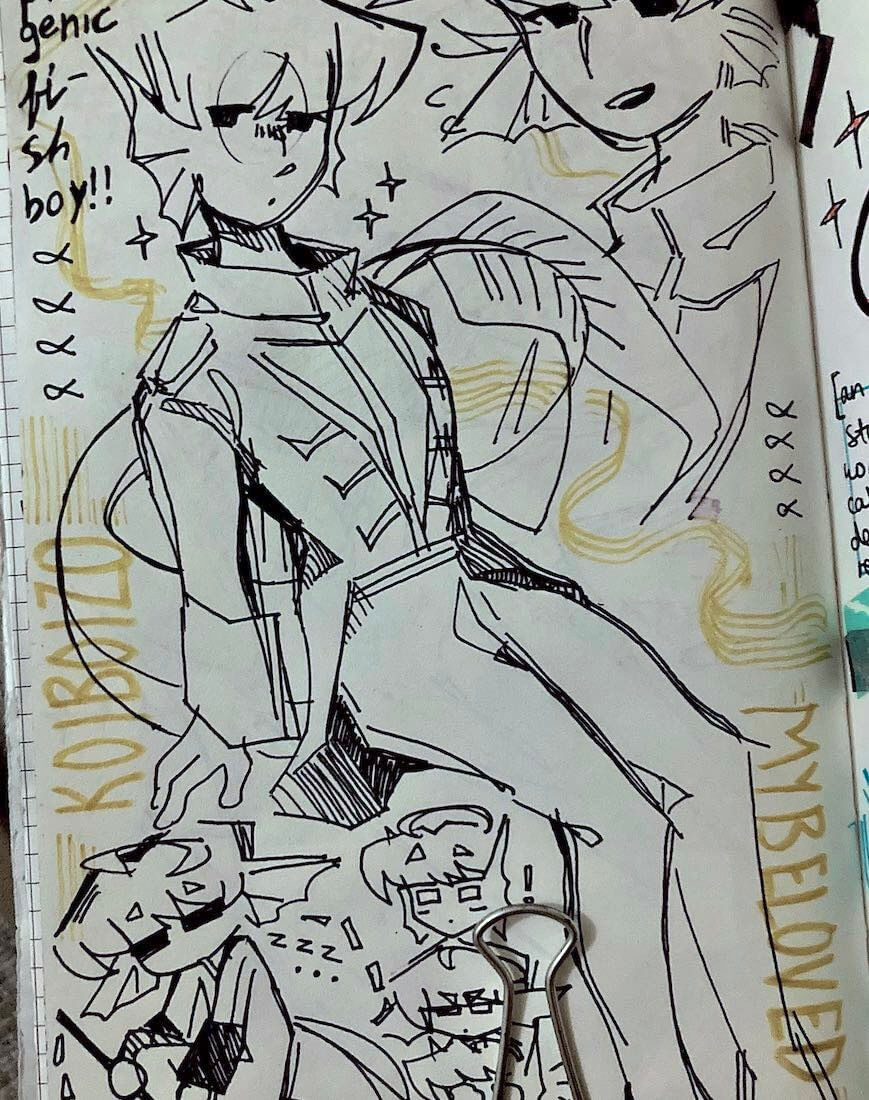 genic
fi-
sh
boy!!
KOIBOIZO
=MY BELOVED=
zzz...
!
[an